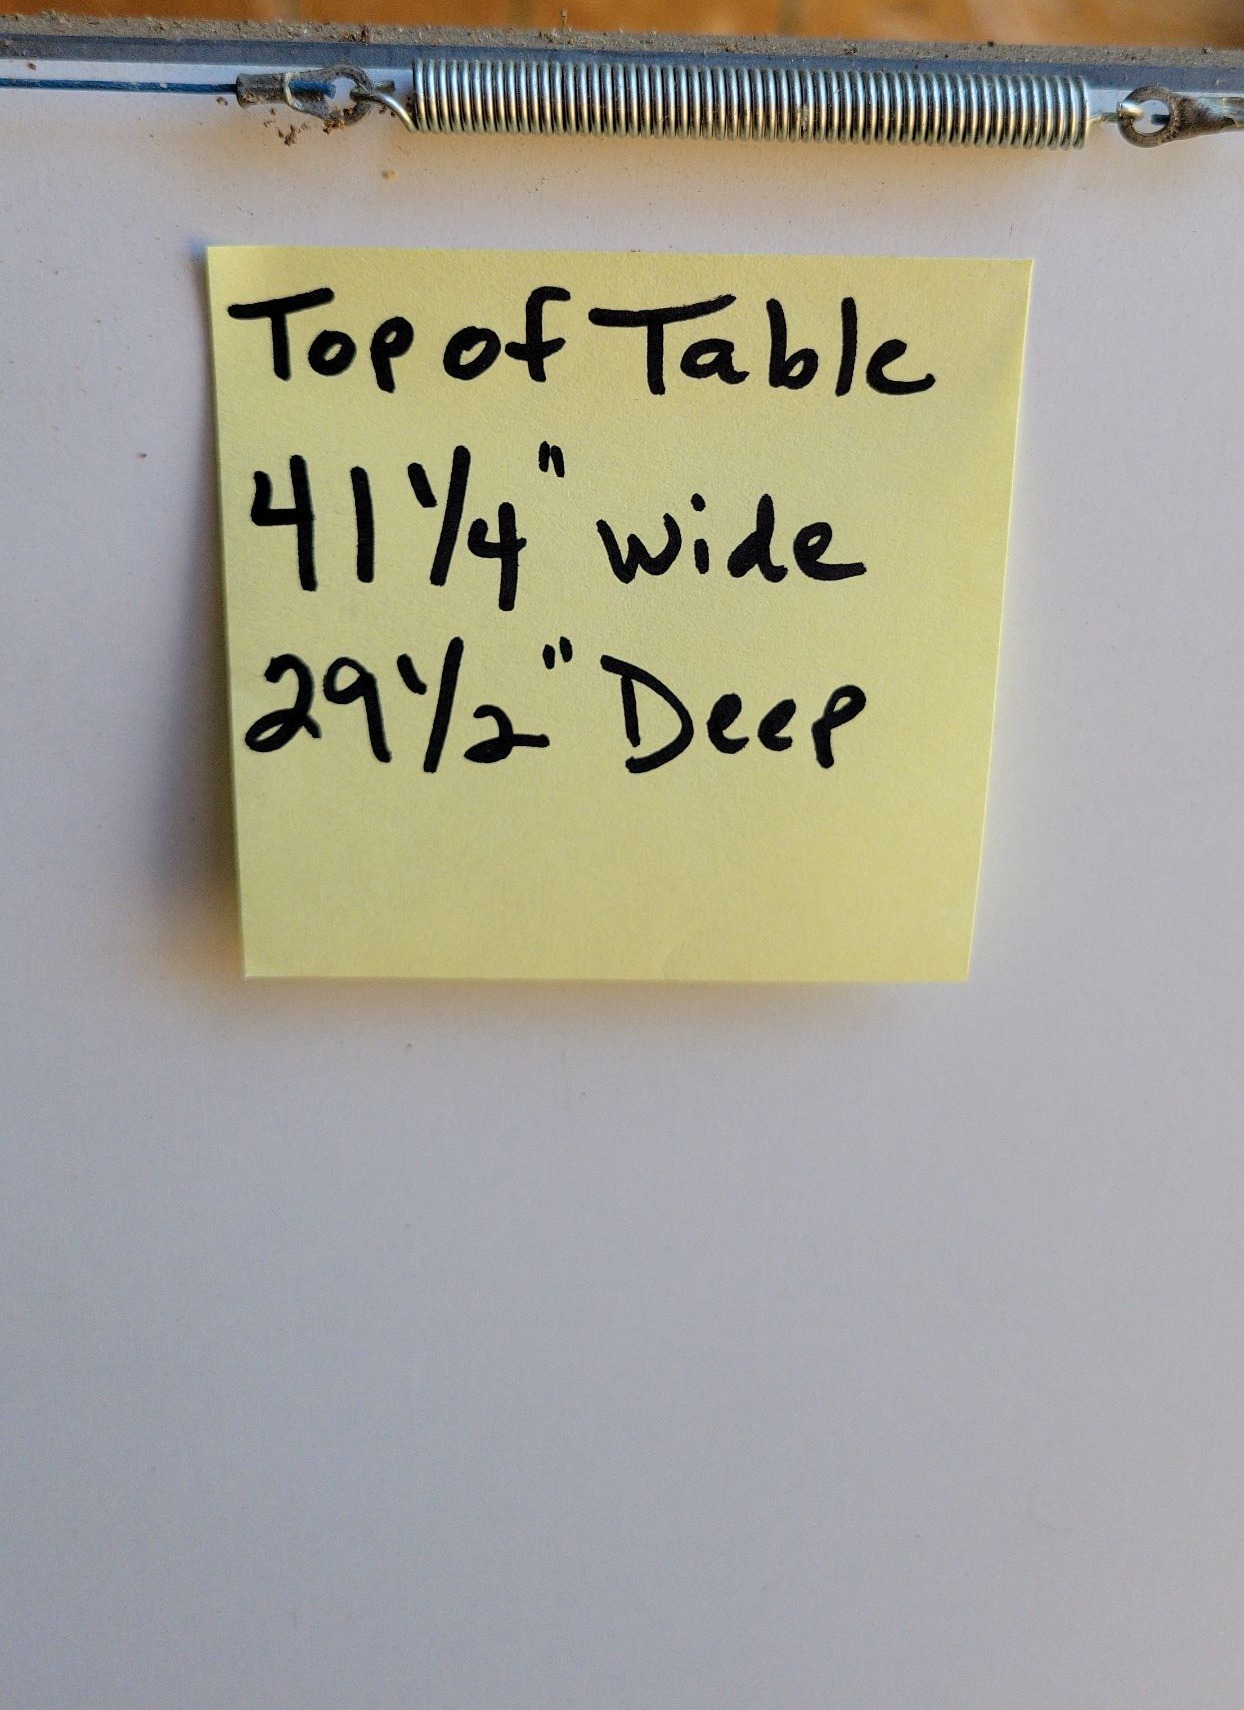 Top of Table
41 1/4" wide
29 1/2" Deep